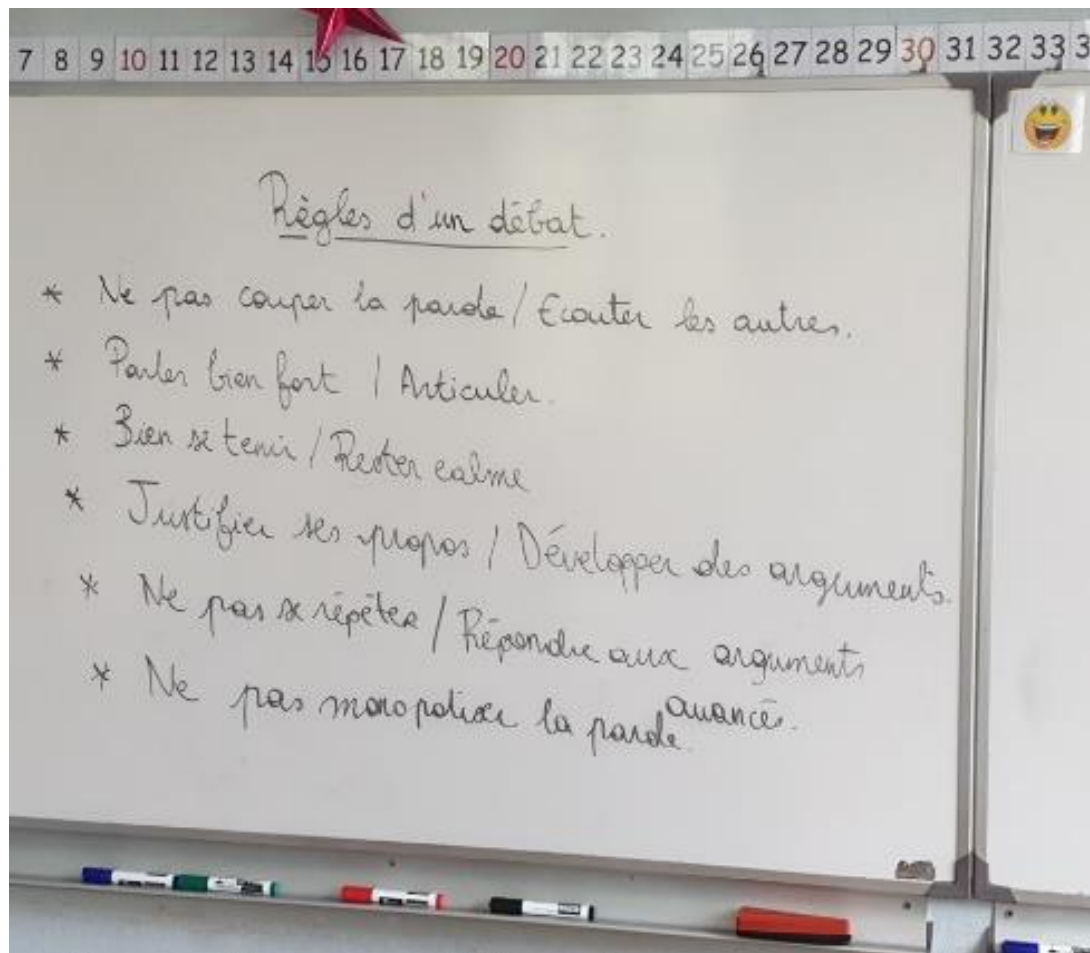 7 8 9 10 11 12 13 14 15 16 17 18 19 20 21 22 23 24 25 26 27 28 29 30 31 32 33 3
Règles d'un débat.
* Ne pas couper la parole / Ecouter les autres.
* Parler bien fort / Articuler.
* Bien se tenir / Rester calme
* Justifier ses propos / Développer des arguments.
* Ne pas se répéter / Répondre aux arguments
avancés.
* Ne pas monopoliser la parole.